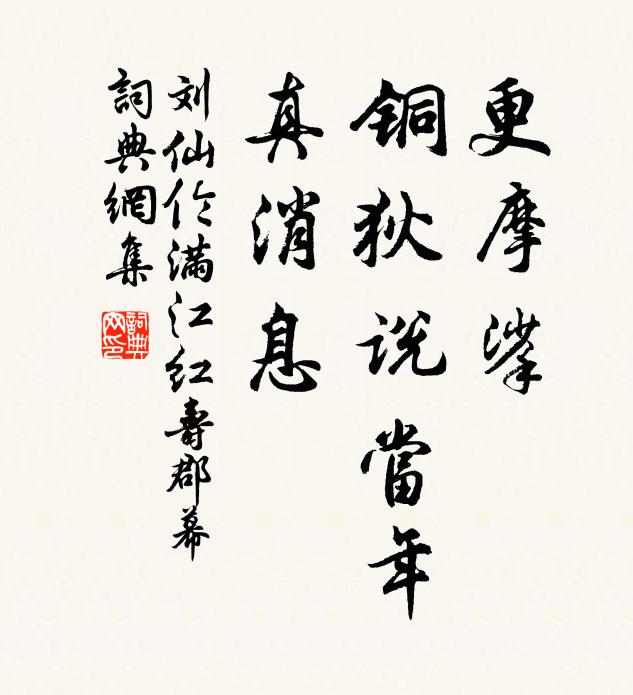 更摩挲
铜狄说當年
真消息
刘仙伦满江红壽郡幕
詞典網集
詞典网印